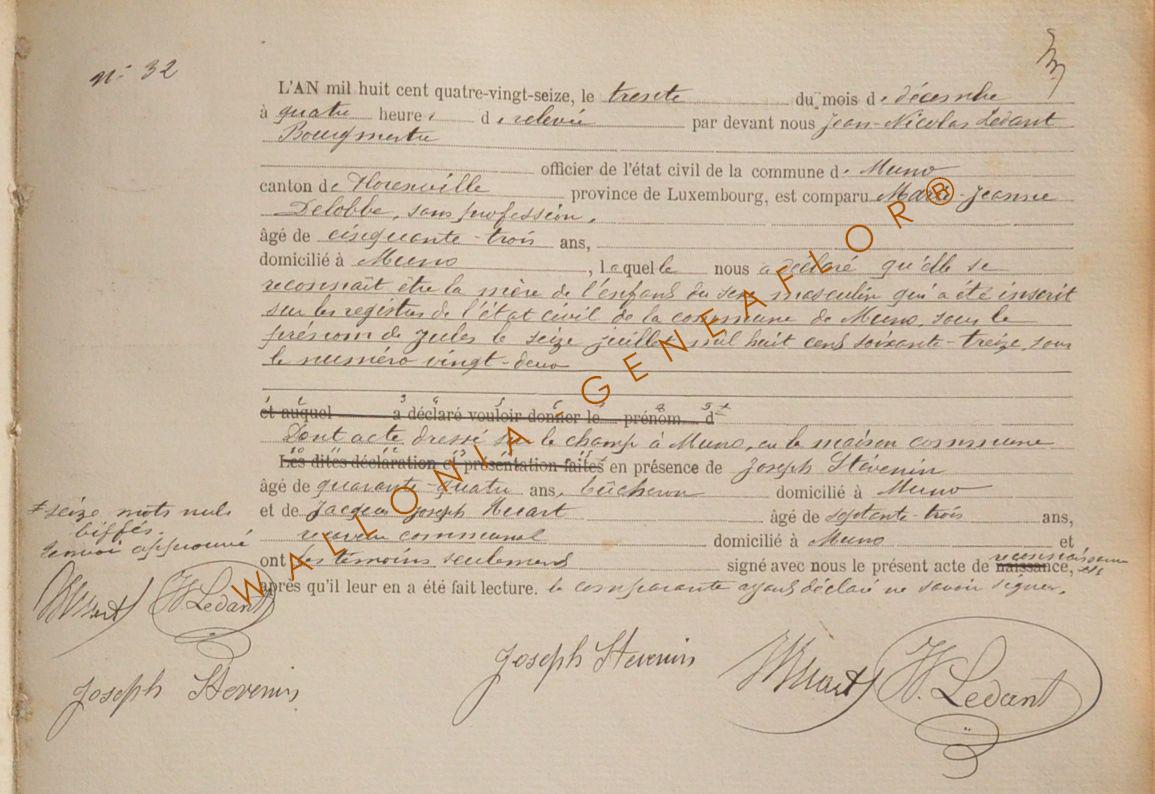 n° 32
L'AN mil huit cent quatre-vingt-seize, le trente du mois de décembre
à quatre heures de relevée par devant nous Jean-Nicolas Ledant
Bourgmestre
officier de l'état civil de la commune de Muno
canton de Florenville province de Luxembourg, est comparu Marie-Jeanne
Delobbe, sans profession,
âgé de cinquante-trois ans,
domicilié à Muno, laquelle nous a déclaré qu'elle se
reconnait être la mère de l'enfant du sexe masculin qui a été inscrit
sur les registres de l'état civil de la commune de Muno, sous le
prénom de Jules le seize juillet mil huit cent soixante-treize, sous
le numéro vingt-deux
et auquel a déclaré vouloir donner le prénom d
Dont acte dressé sur le champ à Muno, en la maison commune
Les dites déclaration et présentation faites en présence de Joseph Stévenin
âgé de quarante-quatre ans, bûcheron domicilié à Muno
et de Jacques Joseph Huart âgé de septante-trois ans,
receveur communal domicilié à Muno et
ont les témoins seulement signé avec nous le présent acte de naissance, reconnaissance
après qu'il leur en a été fait lecture. la comparante ayant déclaré ne savoir signer.
≠ seize mots nuls
biffés.
renvoi approuvé
Huart N. Ledant
Joseph Stevenin
Joseph Stevenin Huart N. Ledant
WALLONIA-GENEAFLOR®